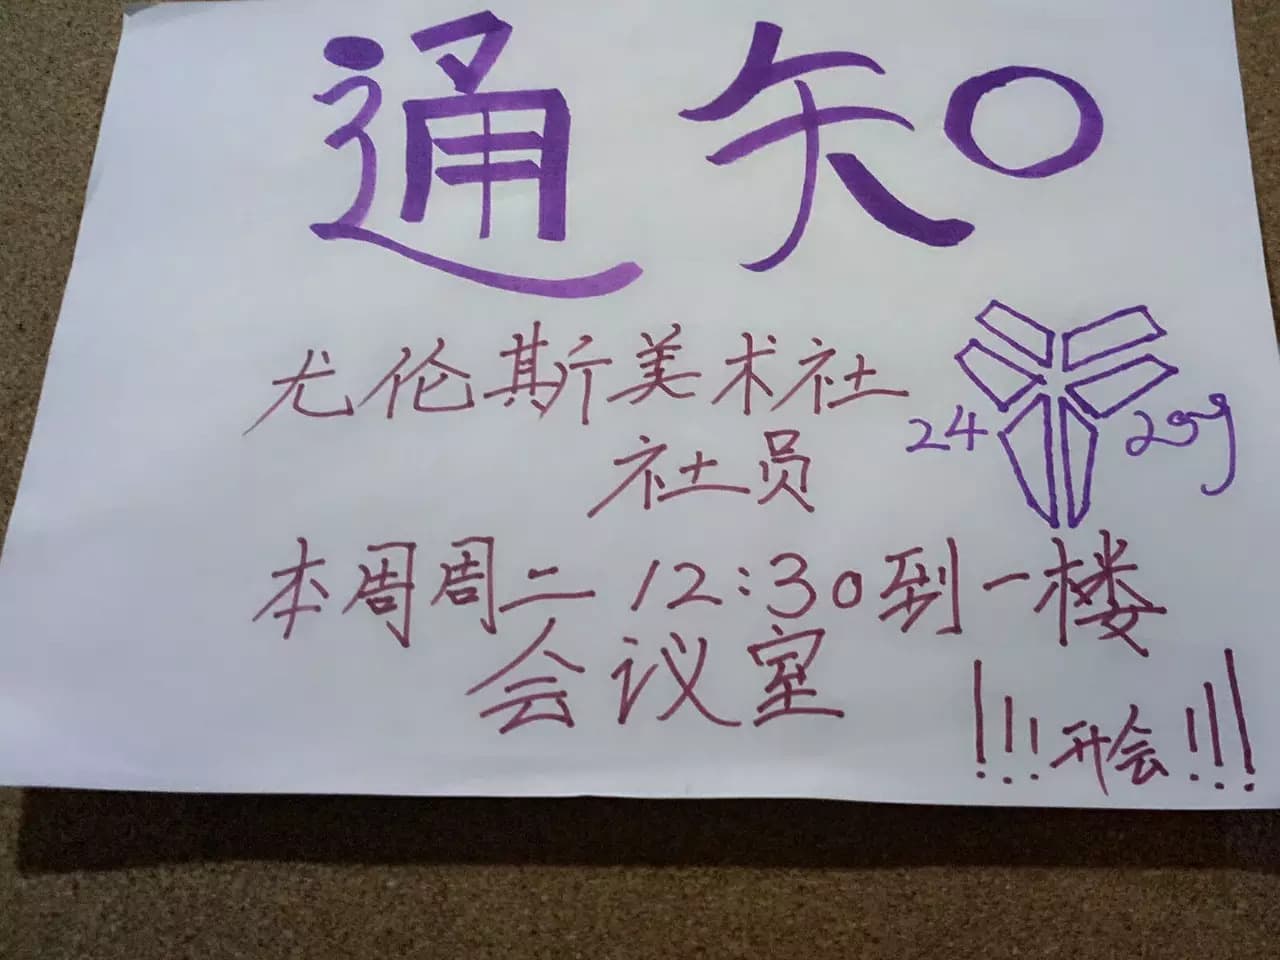 通知
尤伦斯美术社
24
社员
本周周二 12:30到一楼
会议室
!!!开会!!!